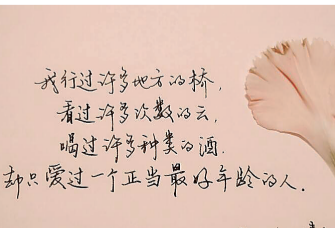 我行过许多地方的桥,
看过许多次数的云,
喝过许多种类的酒.
却只爱过一个正当最好年龄的人.